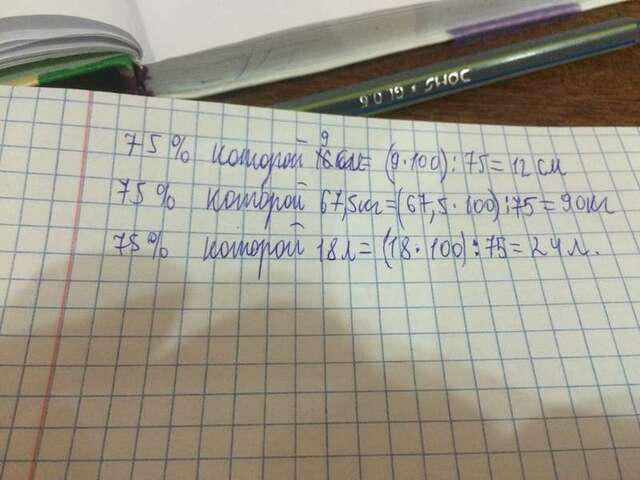 75% которой 9 см = (9·100):75=12 см
75% которой 67,5кг=(67,5·100):75=90кг
75% которой 18л=(18·100):75=24л.